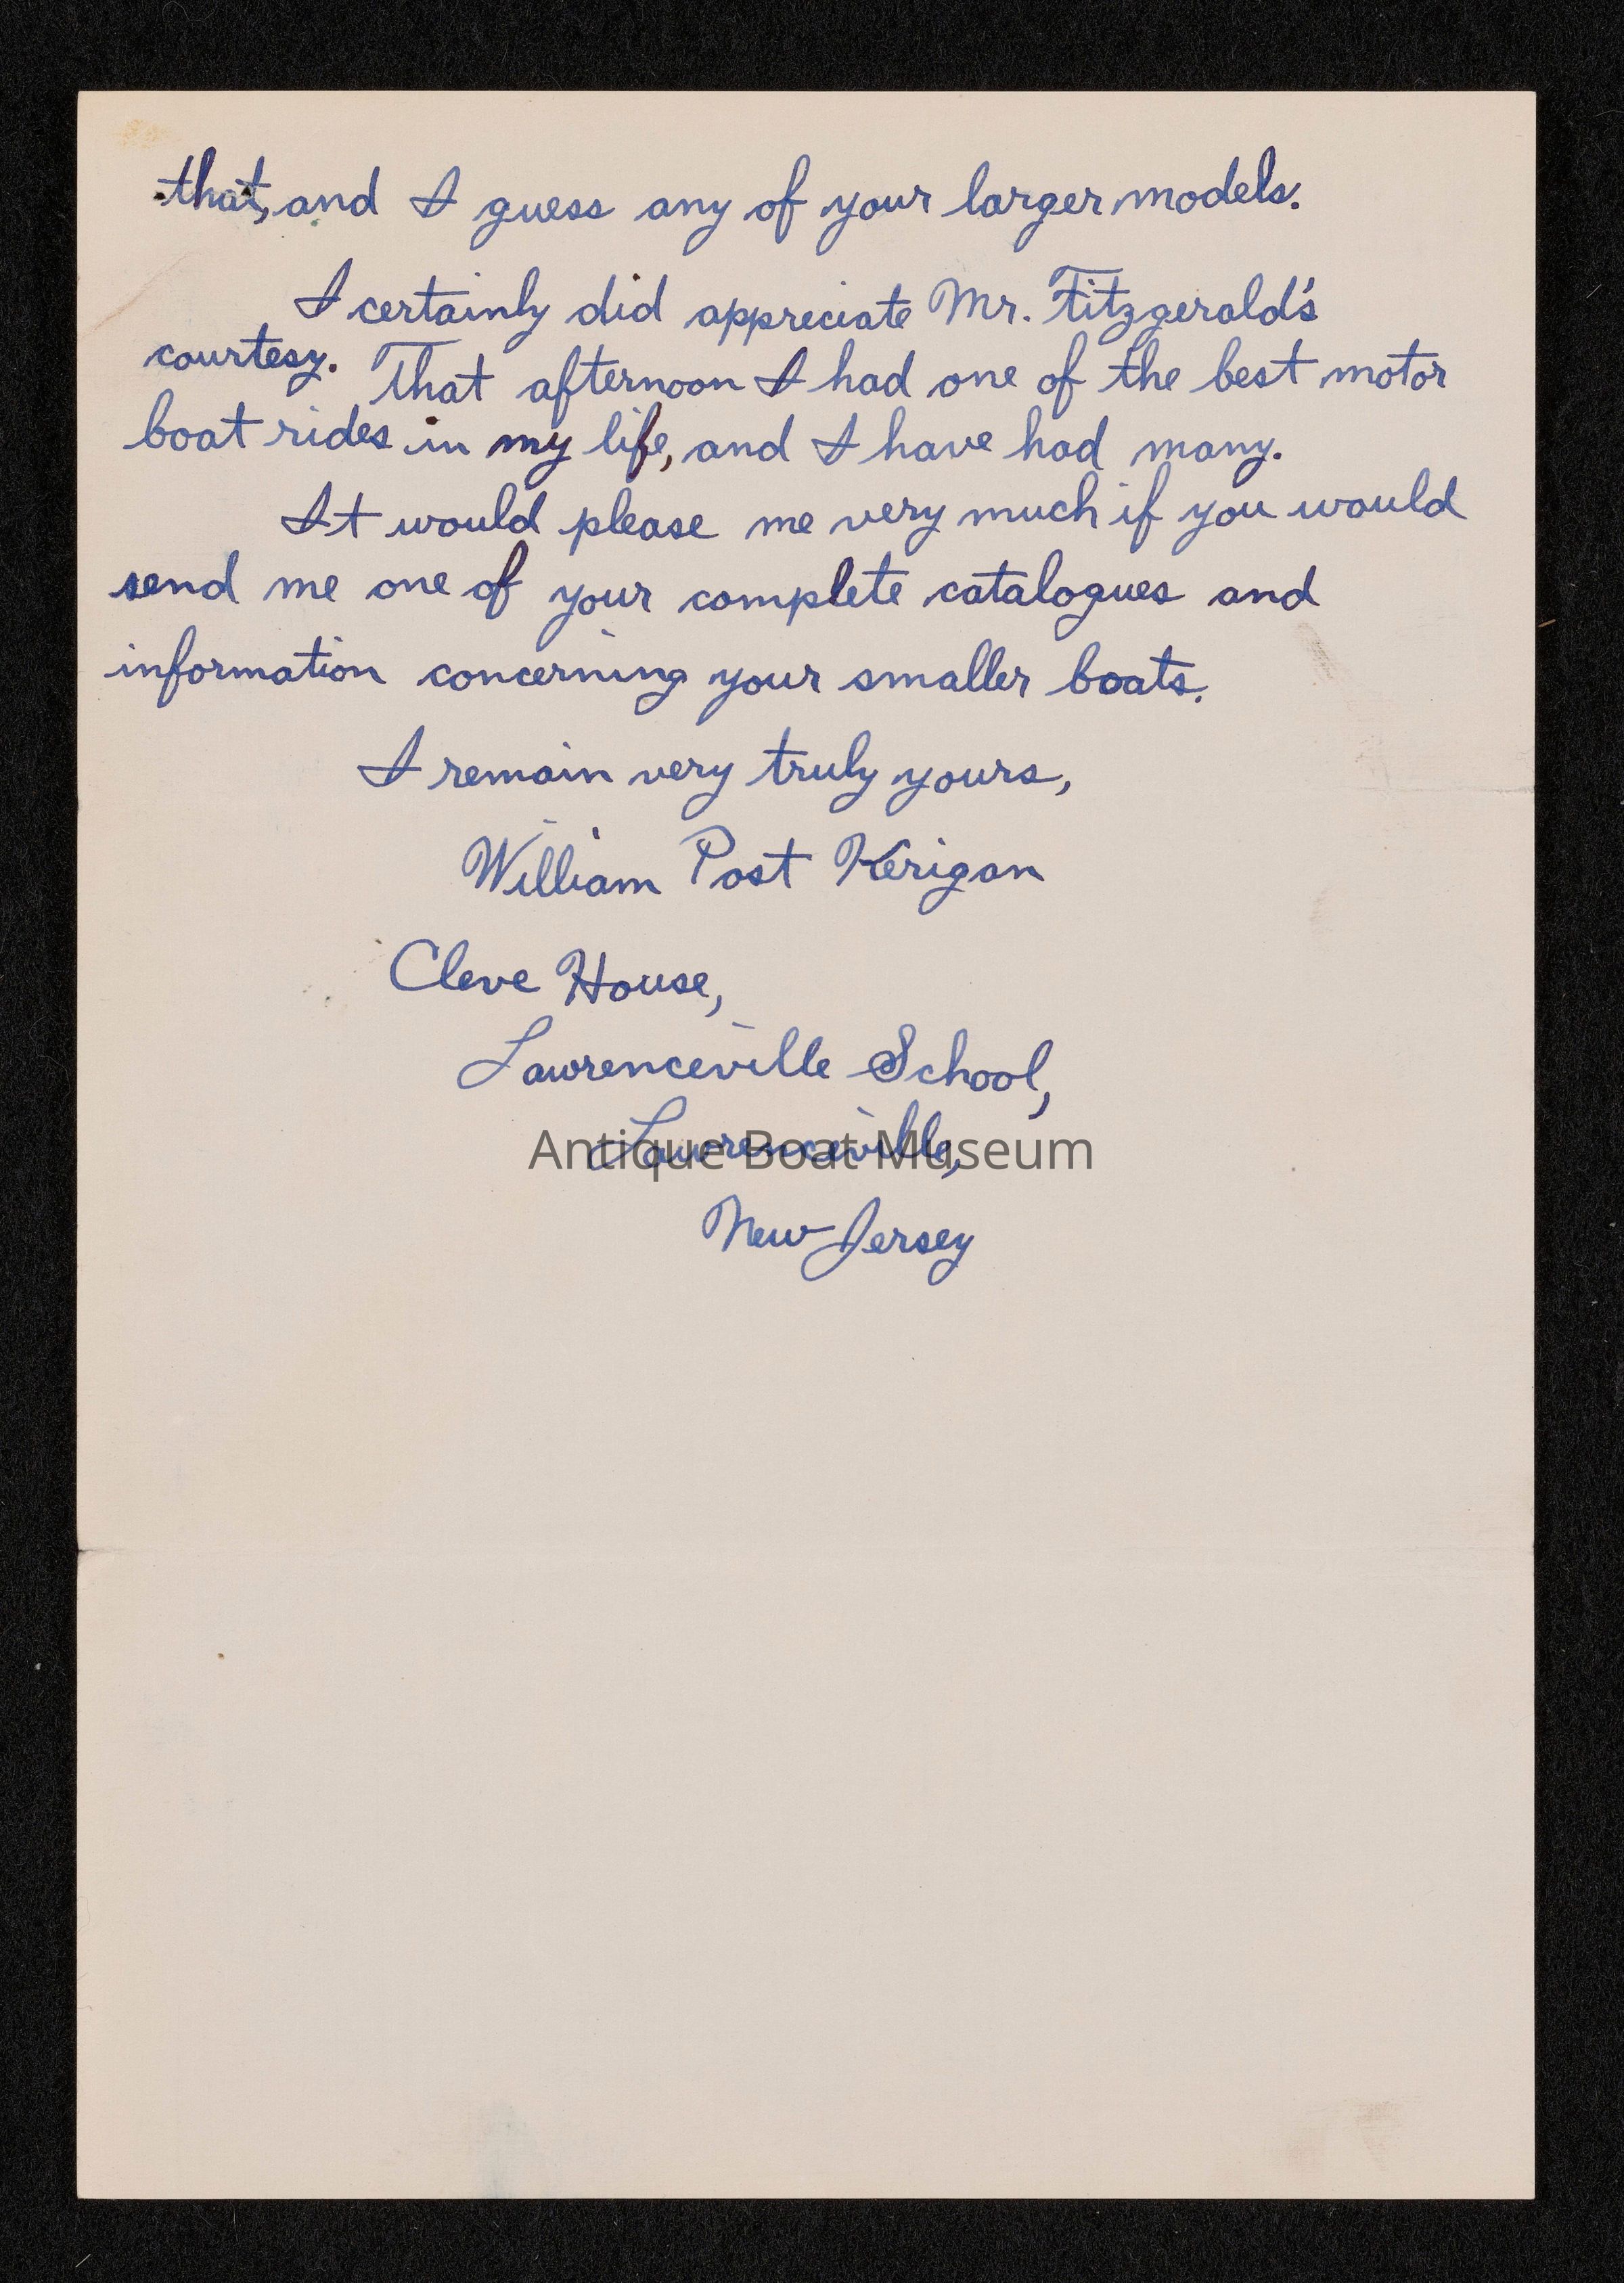 that, and I guess any of your larger models.
I certainly did appreciate Mr. Fitzgerald's
courtesy. That afternoon I had one of the best motor
boat rides in my life, and I have had many.
It would please me very much if you would
send me one of your complete catalogues and
information concerning your smaller boats.
I remain very truly yours,
William Post Kerigan
Cleve House,
Lawrenceville School,
Lawrenceville,
Antique Boat Museum
New Jersey